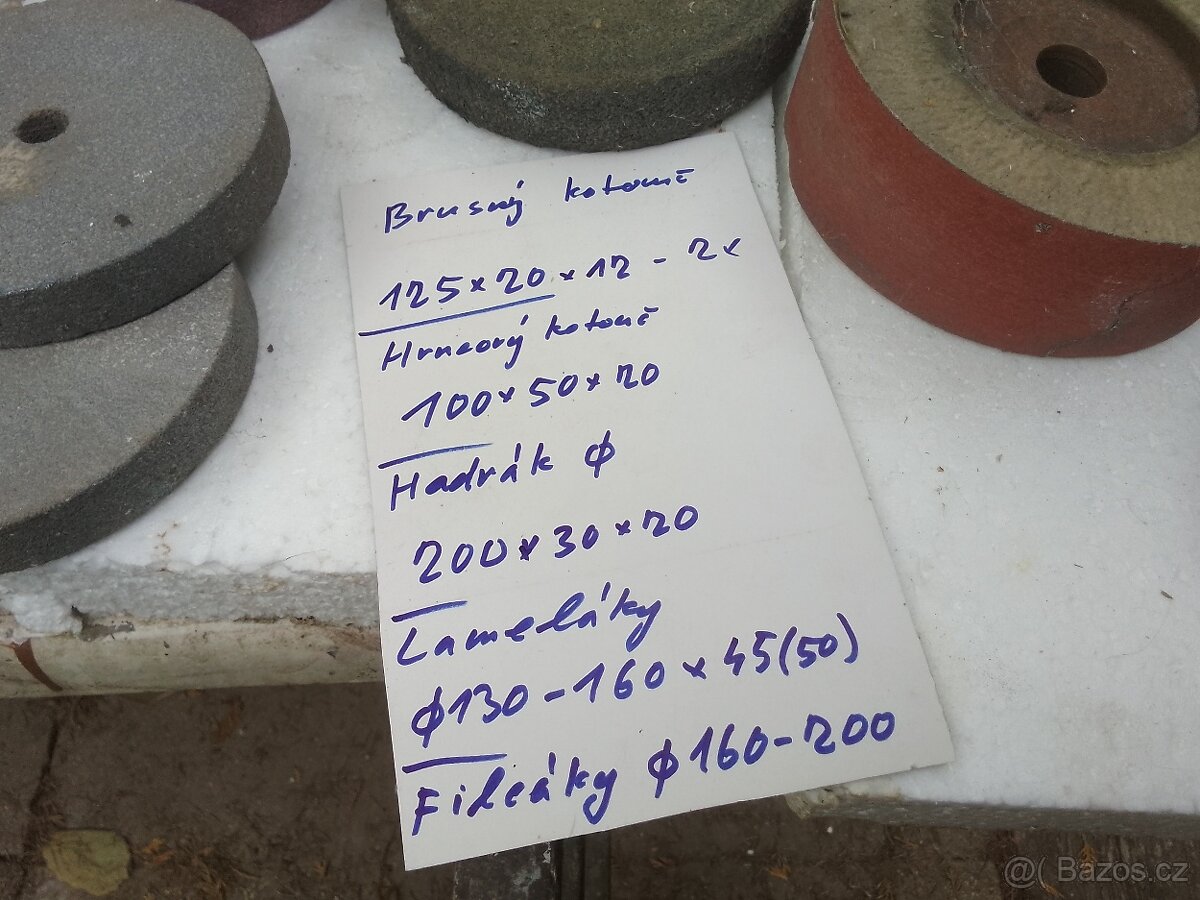 Brusný kotouč
125x20x12 - 2x
Hrncový kotouč
100x50x20
Hadrák ϕ
200x30x20
Lameláky
ϕ130-160x45(50)
Filcáky ϕ160-200
@( Bazos.cz